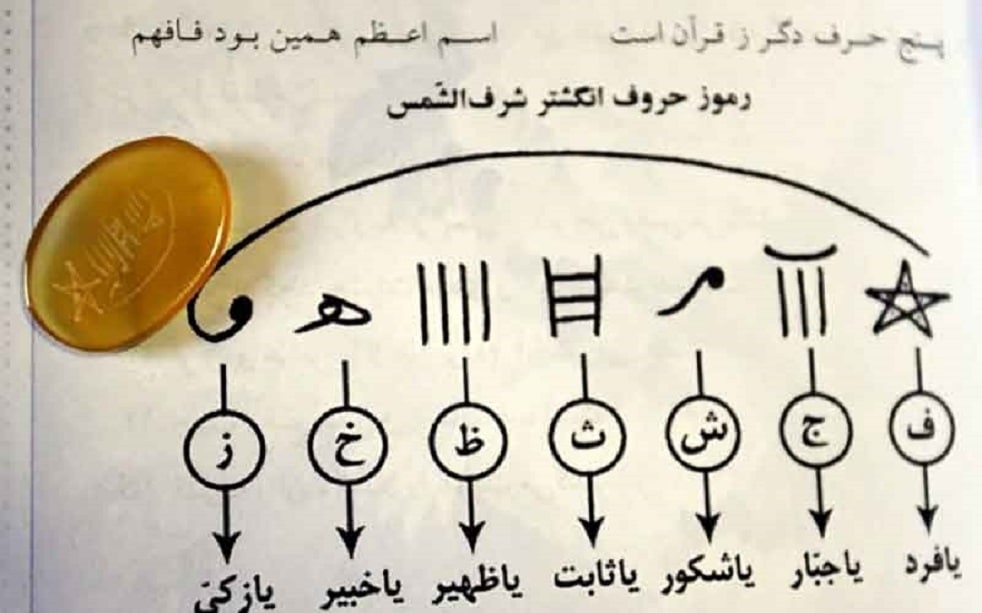 پنج حرف دگر ز قرآن است اسم اعظم همین بود فافهم
رموز حروف انگشتر شرف‌الشّمس
ف ج ش ث ظ خ ز
یافرد یاجبّار یاشکور یاثابت یاظهیر یاخبیر یازکیّ